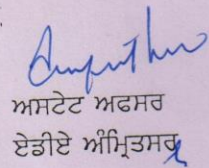 ਅਸਟੇਟ ਅਫਸਰ
ਏਡੀਏ ਅੰਮ੍ਰਿਤਸਰ